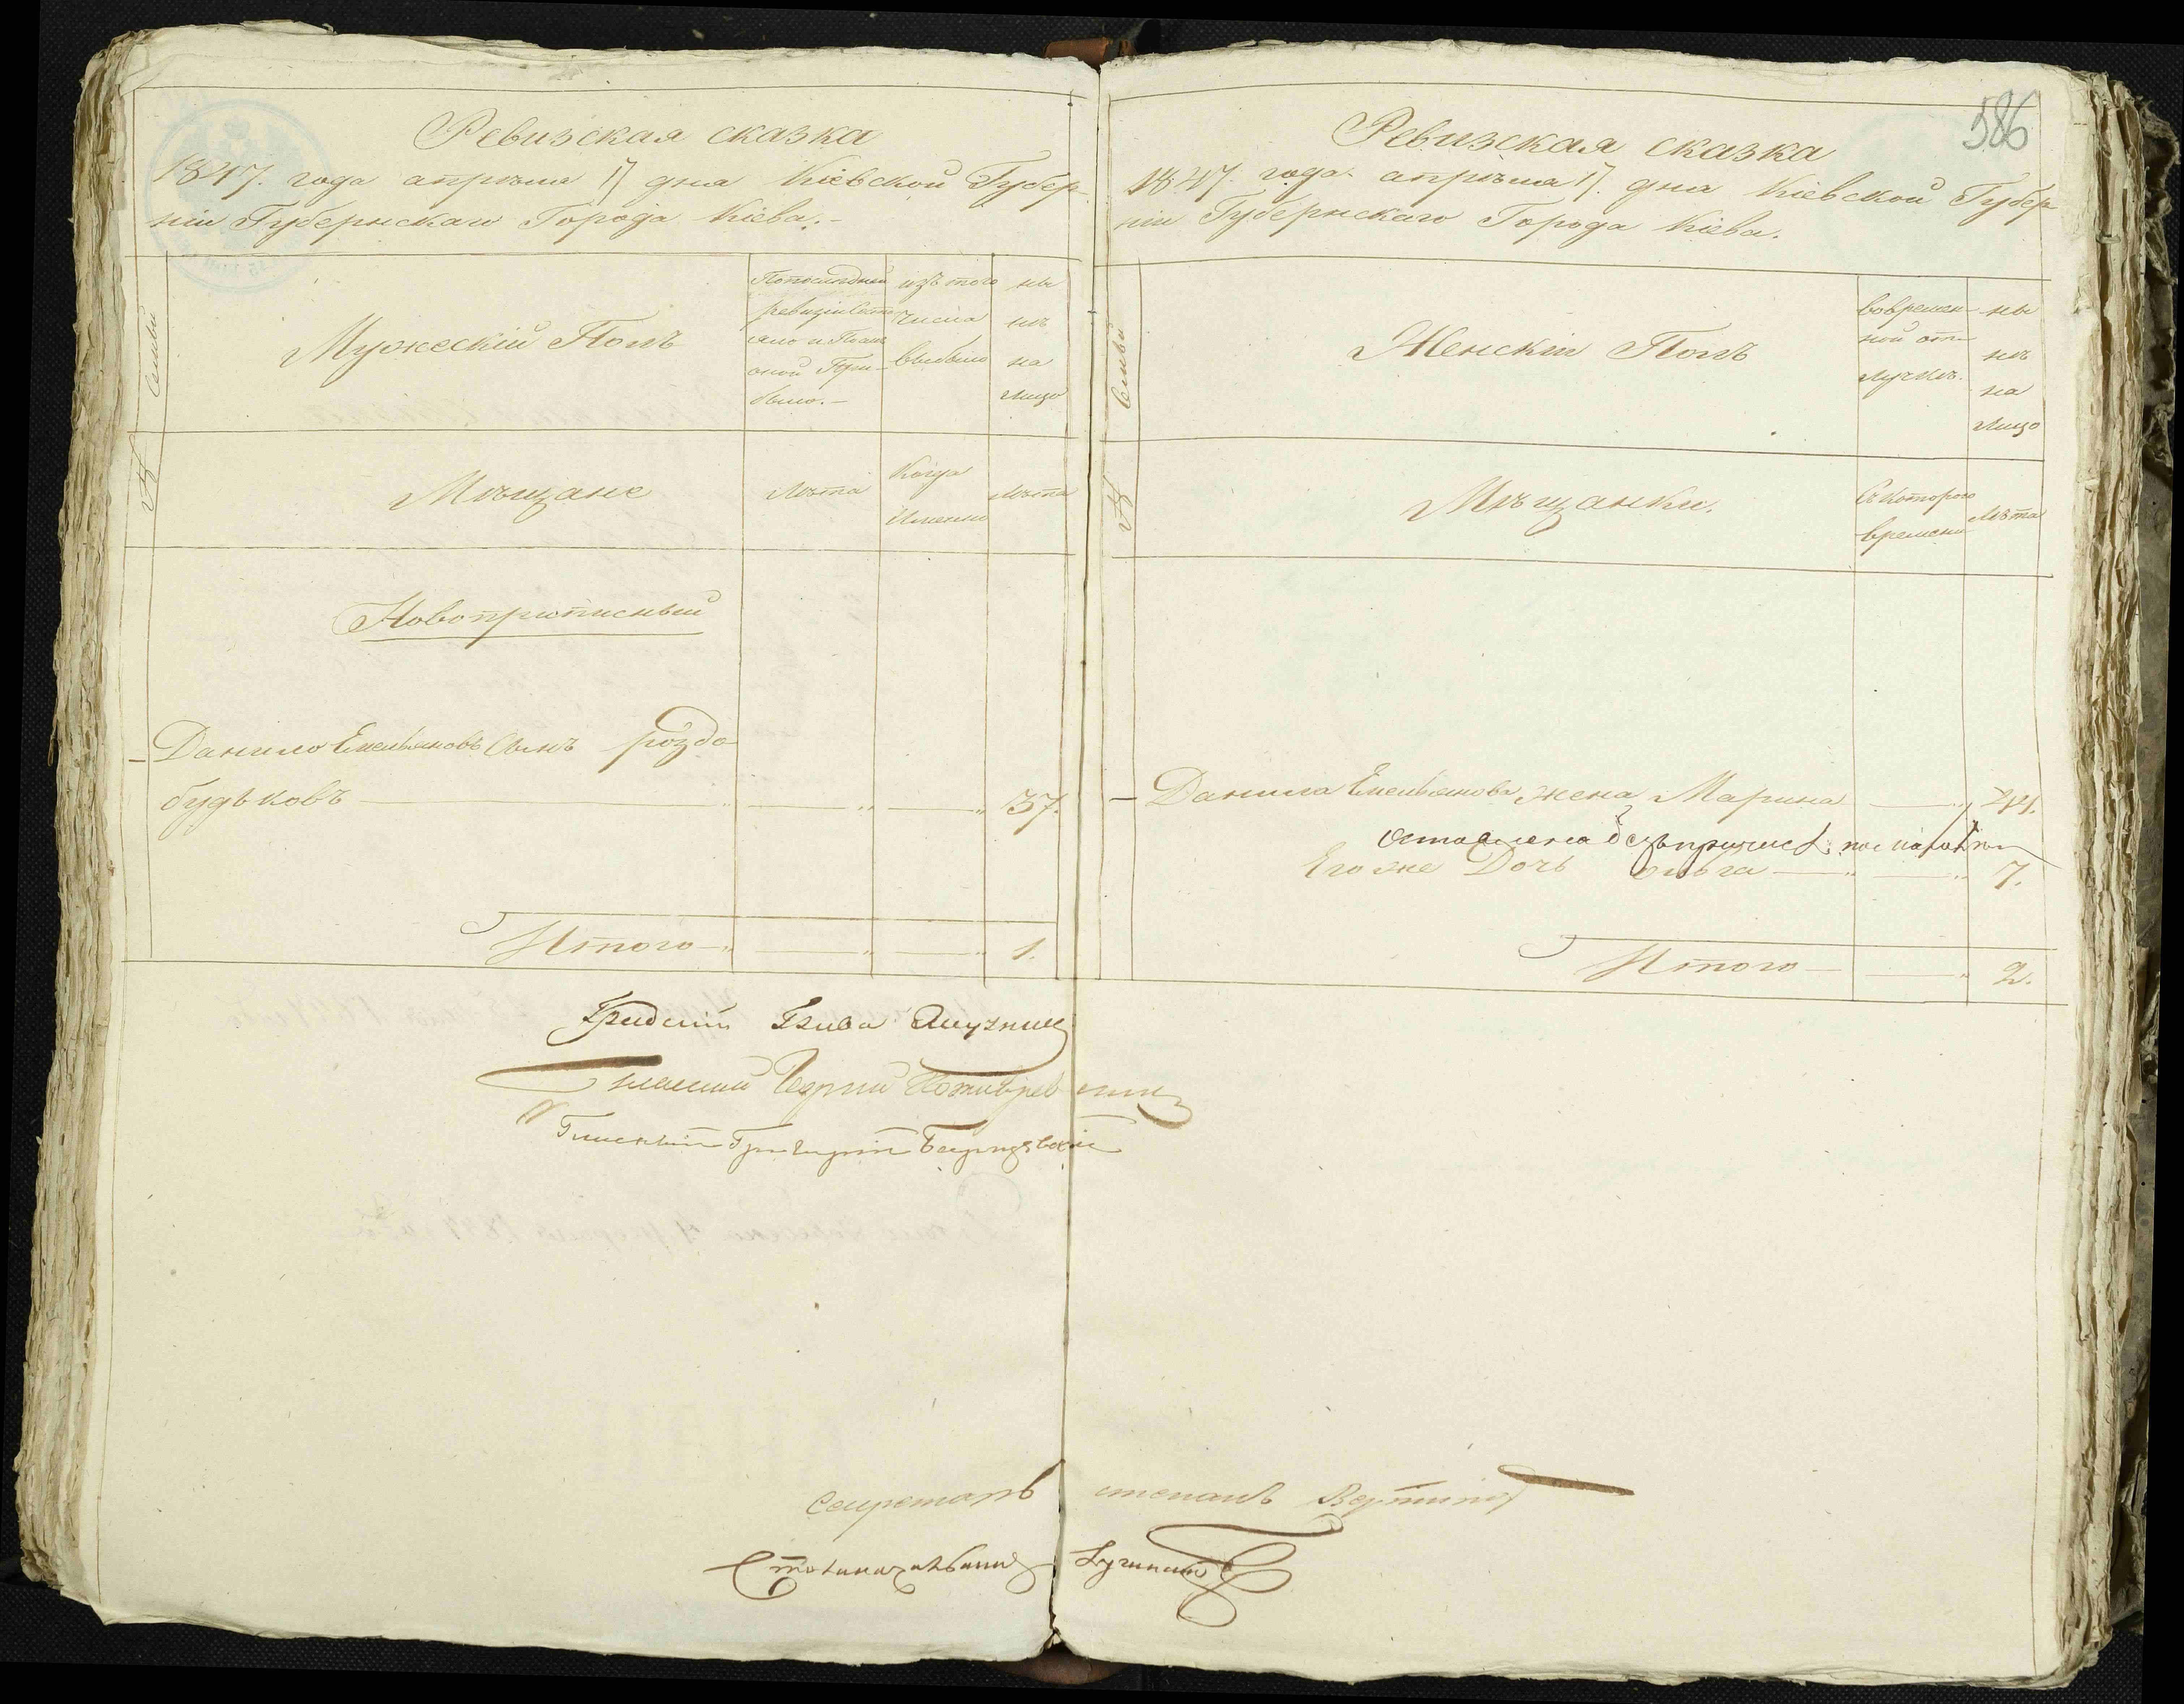 586
Ревизская сказка
1847. года апрѣля 17 дня Кіевской Губер-
ніи Губернскаго Города Кіева.-
Семьи
Мужескій Полъ
По последней
ревизіи состо
яло и после
оной При-
было.-
изъ того
числа
выбыло
ны
нѣ
на
лицо
№
Мѣщане
Лѣта
Когда
Именно
Лѣта
Новоприписный
Данило Емельяновъ Сынъ роздо
будьковъ 37.
Итого 1.
Ревизская сказка
1847. года апрѣля 17. дня Кіевской Губер
ніи Губернскаго Города Кіева.
Семьи
Женскій Полъ
во времен-
ной от-
лучкѣ.
ны
нѣ
на
Лицо
№
Мѣщанки.
Съ котораго
времени
Лѣта
Данила Емельянова жена Марина
оставлена безъ
Его же Дочь Ольга 7.
Итого 2.
Градскій Глава
Гласный
Гласный Григорій
Секретарь степанъ
Столоначальникъ